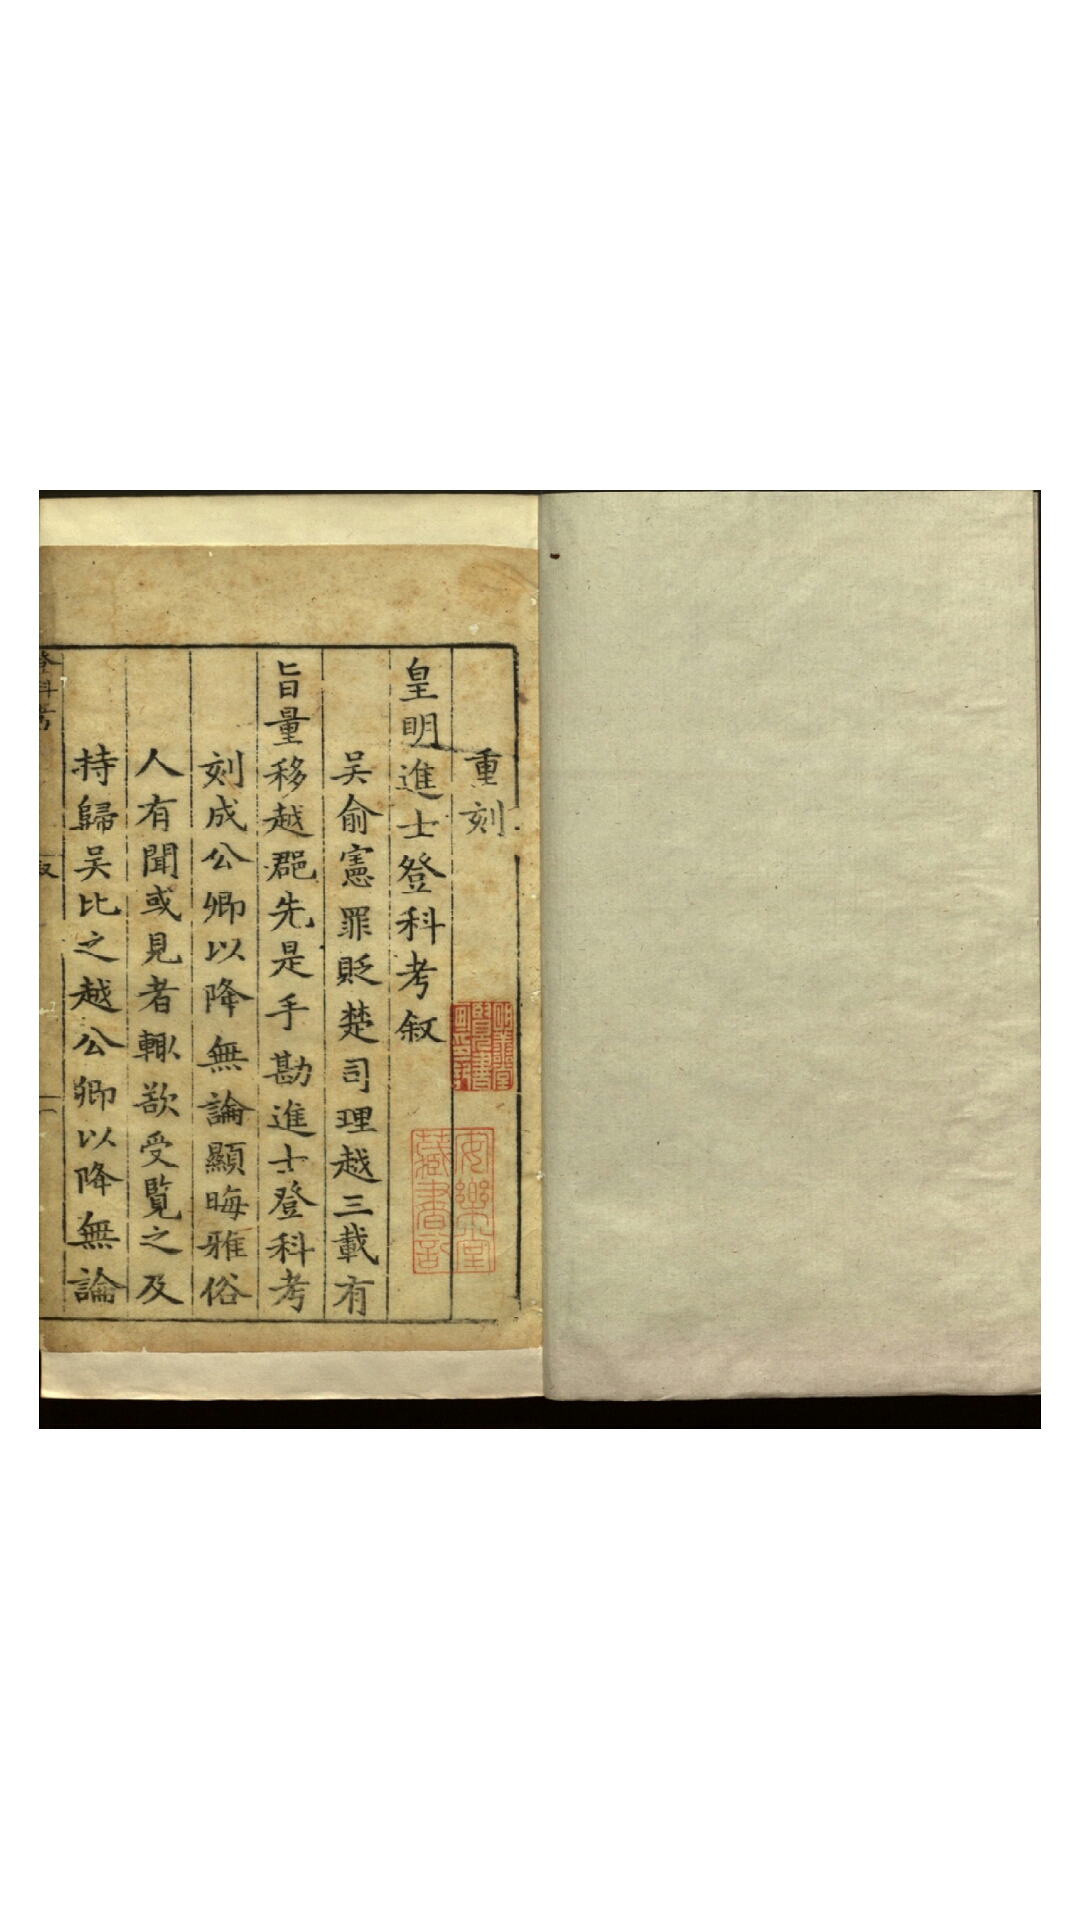 重刻
皇明進士登科考叙
吴俞憲罪貶楚司理越三載有
旨量移越郡先是手勘進士登科考
刻成公卿以降無論顯晦雅俗
人有聞或見者輙欲受覧之及
持歸吴比之越公卿以降無論
登科考
叙
一
安樂堂
藏書記